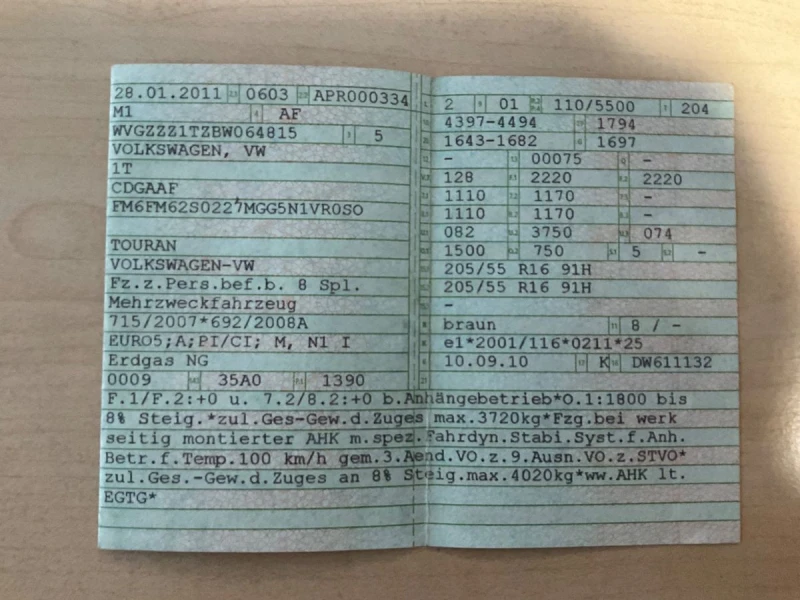 28.01.2011 0603 APR000334
M1 AF
WVGZZZ1TZBW064815 5
VOLKSWAGEN, VW
1T
CDGAAF
FM6FM62S0227MGG5N1VR0SO
TOURAN
VOLKSWAGEN-VW
Fz.z.Pers.bef.b. 8 Spl.
Mehrzweckfahrzeug
715/2007*692/2008A
EURO5;A;PI/CI; M, N1 I
Erdgas NG
0009 35A0 1390
2 01 110/5500 204
4397-4494 1794
1643-1682 1697
- 00075 -
128 2220 2220
1110 1170 -
1110 1170 -
082 3750 074
1500 750 5 -
205/55 R16 91H
205/55 R16 91H
-
braun 8 / -
e1*2001/116*0211*25
10.09.10 K DW611132
F.1/F.2:+0 u. 7.2/8.2:+0 b.Anhängebetrieb*O.1:1800 bis
8% Steig.*zul.Ges-Gew.d.Zuges max.3720kg*Fzg.bei werk
seitig montierter AHK m.spez.Fahrdyn.Stabi.Syst.f.Anh.
Betr.f.Temp.100 km/h gem.3.Aend.VO.z.9.Ausn.VO.z.STVO*
zul.Ges.-Gew.d.Zuges an 8% Steig.max.4020kg*ww.AHK lt.
EGTG*